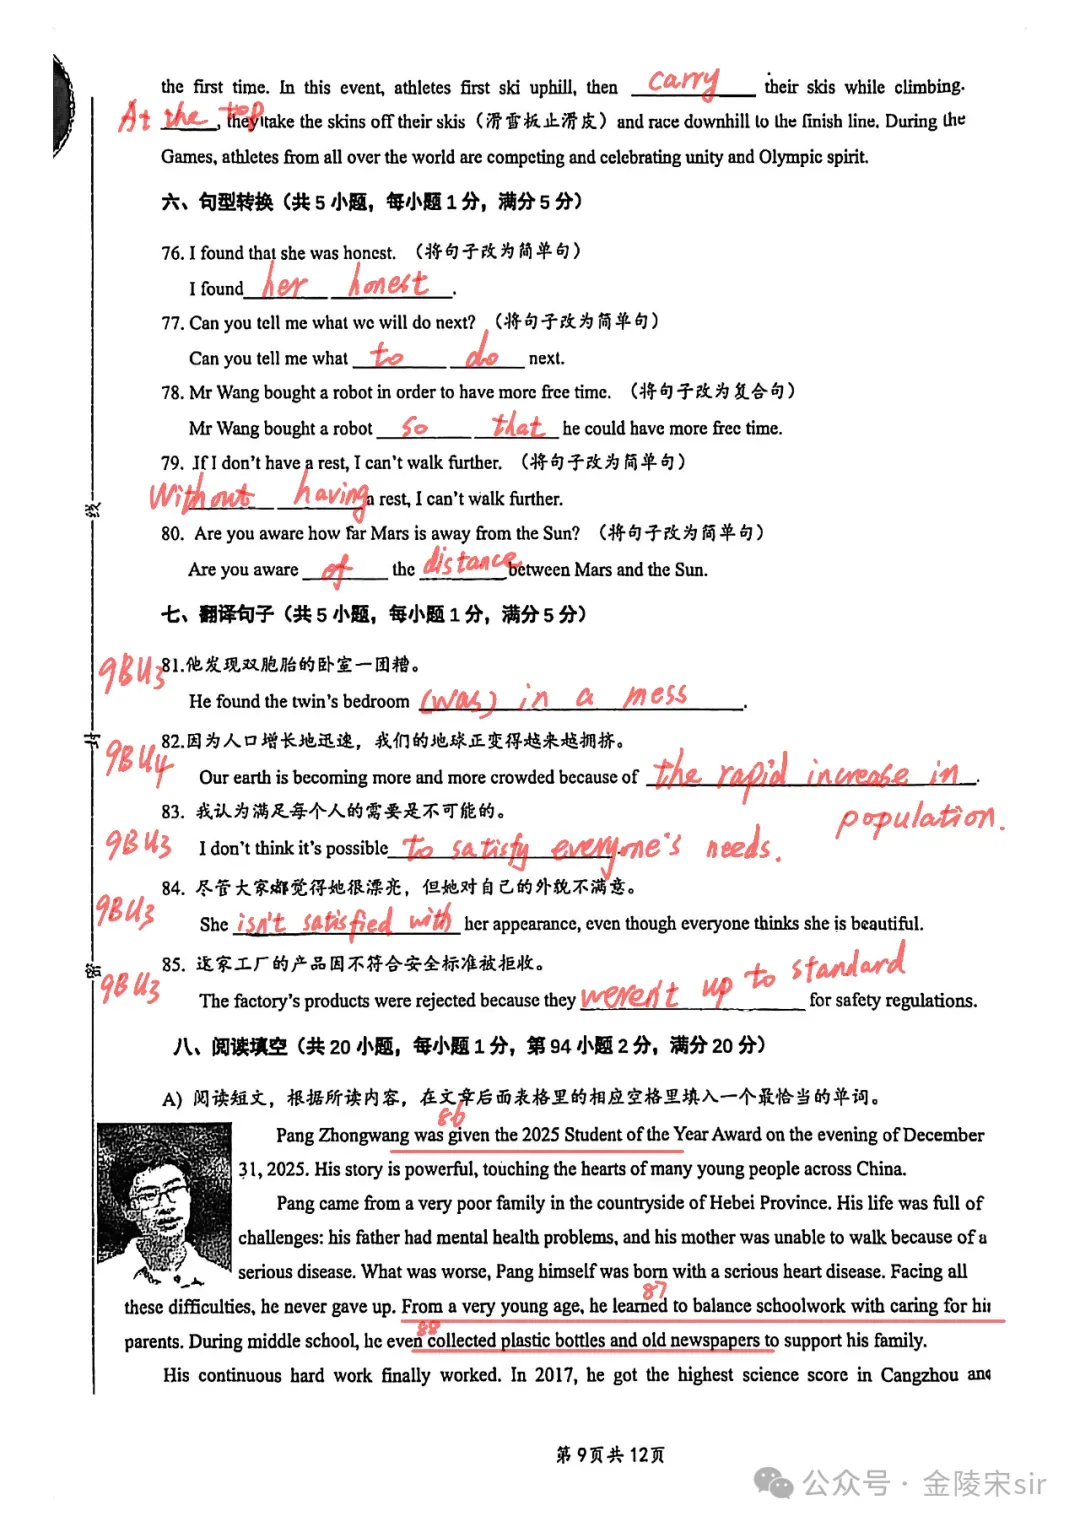 the first time. In this event, athletes first ski uphill, then carry their skis while climbing.
At the top, they take the skins off their skis（滑雪板止滑皮）and race downhill to the finish line. During the
Games, athletes from all over the world are competing and celebrating unity and Olympic spirit.
六、句型转换（共 5 小题，每小题 1 分，满分 5 分）
76. I found that she was honest. （将句子改为简单句）
I found her honest.
77. Can you tell me what we will do next? （将句子改为简单句）
Can you tell me what to do next.
78. Mr Wang bought a robot in order to have more free time. （将句子改为复合句）
Mr Wang bought a robot so that he could have more free time.
79. If I don't have a rest, I can't walk further. （将句子改为简单句）
Without having a rest, I can't walk further.
线
80. Are you aware how far Mars is away from the Sun? （将句子改为简单句）
Are you aware of the distance between Mars and the Sun.
七、翻译句子（共 5 小题，每小题 1 分，满分 5 分）
9BU3 81.他发现双胞胎的卧室一团糟。
He found the twin's bedroom (was) in a mess.
9BU4 82.因为人口增长地迅速，我们的地球正变得越来越拥挤。
Our earth is becoming more and more crowded because of the rapid increase in
population.
83. 我认为满足每个人的需要是不可能的。
9BU3 I don't think it's possible to satisfy everyone's needs.
9BU3 84. 尽管大家都觉得她很漂亮，但她对自己的外貌不满意。
She isn't satisfied with her appearance, even though everyone thinks she is beautiful.
密
9BU3 85. 这家工厂的产品因不符合安全标准被拒收。
The factory's products were rejected because they weren't up to standard for safety regulations.
八、阅读填空（共 20 小题，每小题 1 分，第 94 小题 2 分，满分 20 分）
A) 阅读短文，根据所读内容，在文章后面表格里的相应空格里填入一个最恰当的单词。
86
Pang Zhongwang was given the 2025 Student of the Year Award on the evening of December
31, 2025. His story is powerful, touching the hearts of many young people across China.
Pang came from a very poor family in the countryside of Hebei Province. His life was full of
challenges: his father had mental health problems, and his mother was unable to walk because of a
serious disease. What was worse, Pang himself was born with a serious heart disease. Facing all
87
these difficulties, he never gave up. From a very young age, he learned to balance schoolwork with caring for his
88
parents. During middle school, he even collected plastic bottles and old newspapers to support his family.
His continuous hard work finally worked. In 2017, he got the highest science score in Cangzhou and
第 9页共 12页
公众号 · 金陵宋sir